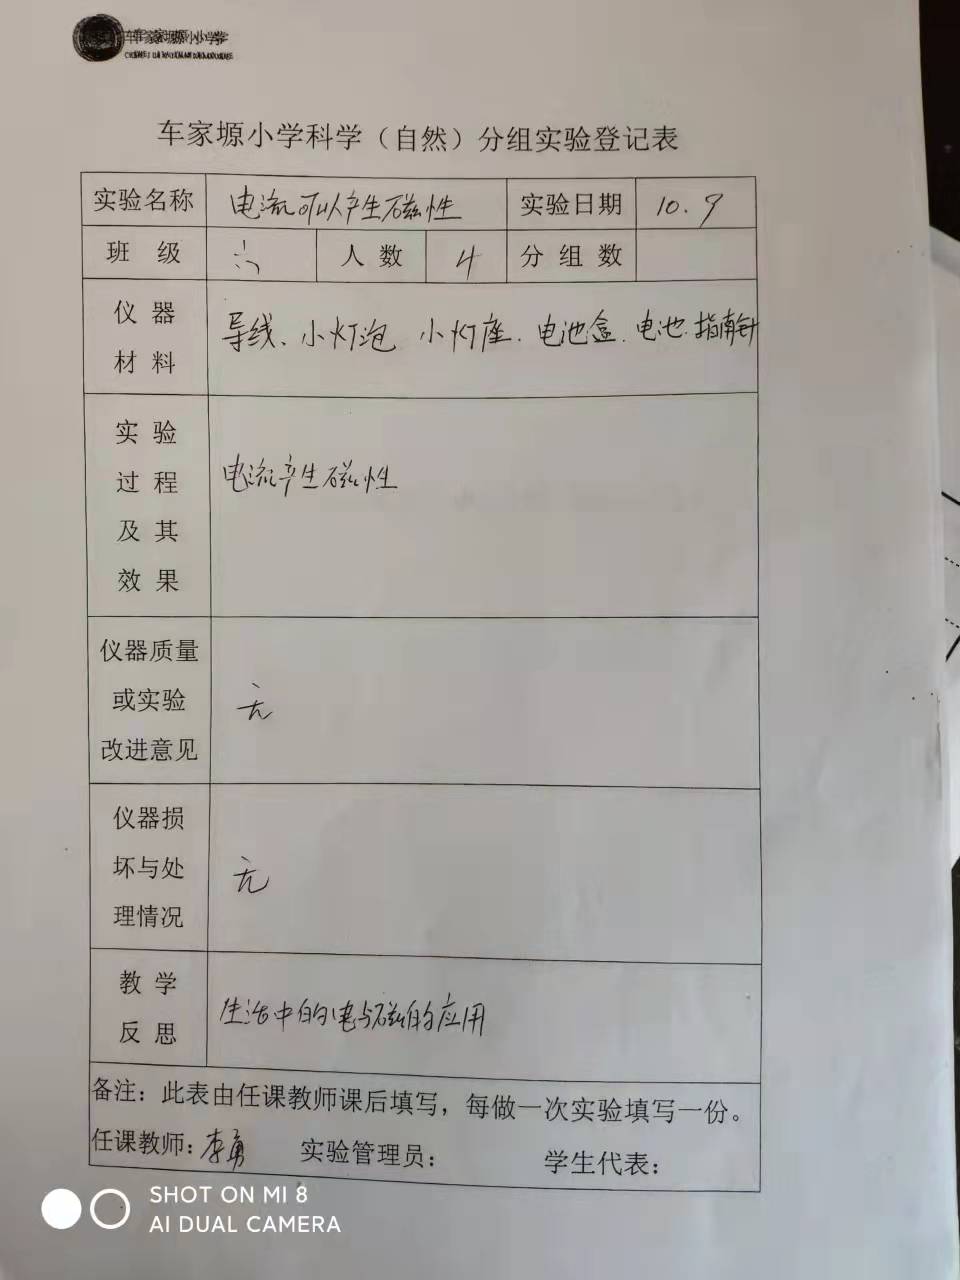 车家塬小学
车家塬小学科学（自然）分组实验登记表
实验名称 电流可以产生磁性 实验日期 10.9
班 级 六 人 数 4 分 组 数
仪 器
材 料
导线、小灯泡 小灯座、电池盒、电池、指南针
实 验
过 程
及 其
效 果
电流产生磁性
仪器质量
或实验
改进意见
无
仪器损
坏与处
理情况
无
教 学
反 思
生活中的电与磁的应用
备注：此表由任课教师课后填写，每做一次实验填写一份。
任课教师：李勇 实验管理员： 学生代表：
SHOT ON MI 8
AI DUAL CAMERA